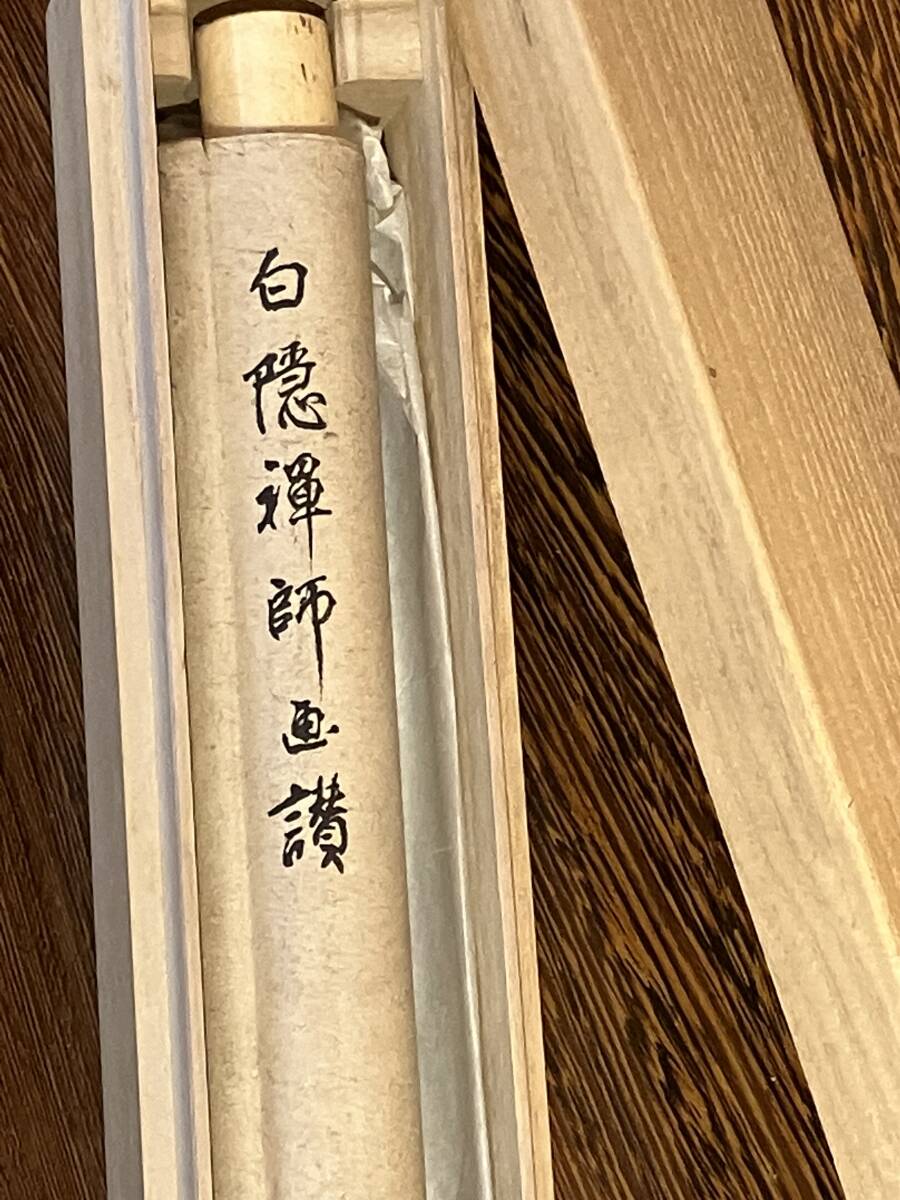 白隠禅師画讃